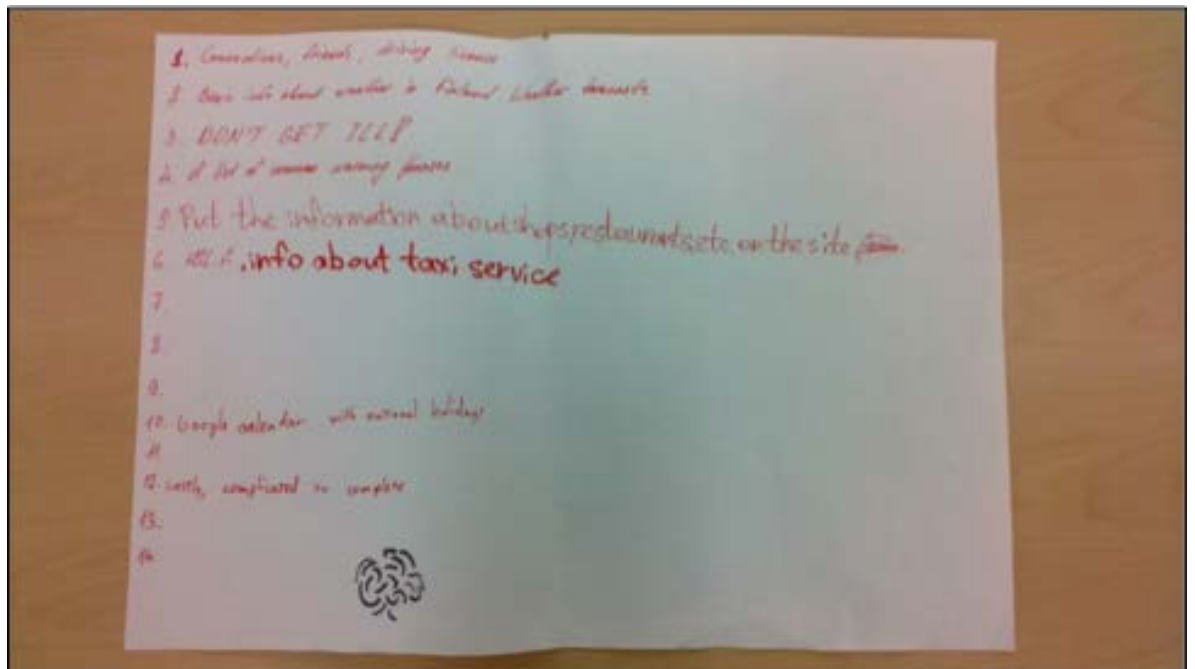 1. Connections, friends, driving license
2. Basic info about weather in Finland weather forecasts
3. DON'T GET ILL!
4. A list of phrases
5 Put the information about shops, restaurants, etc. on the site
6. , info about taxi service
7.
8.
9.
10. Google calendar with national holidays
11
12. costly, complicated to complete
13.
14